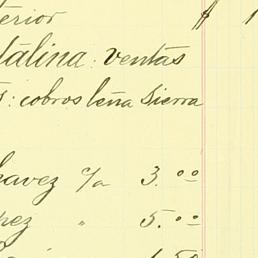 erior $ 1
talina: ventas
s: cobros leña Sierra
havez c/a 3.00
pez " 5.00
1.50